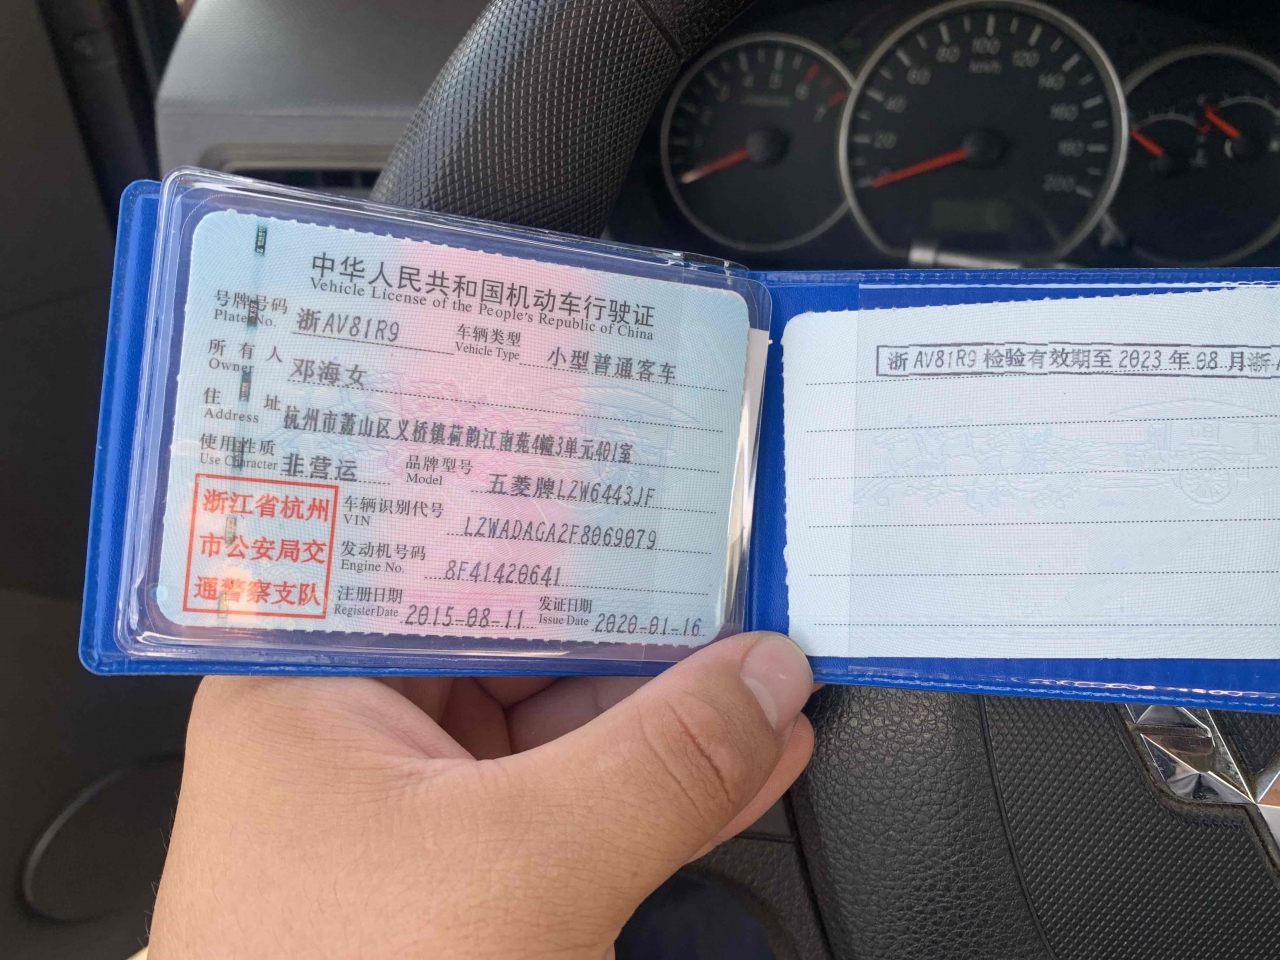 中华人民共和国机动车行驶证
Vehicle License of the People's Republic of China
号牌号码 浙AV81R9 车辆类型 小型普通客车
Plate No. Vehicle Type
所有人 邓海女
Owner
住址 杭州市萧山区义桥镇荷韵江南苑4幢3单元401室
Address
使用性质 非营运 品牌型号 五菱牌LZW6443JF
Use Character Model
浙江省杭州
市公安局交
通警察支队
车辆识别代号 LZWADAGA2F8069079
VIN
发动机号码 8F41420641
Engine No.
注册日期 2015-08-11 发证日期 2020-01-16
Register Date Issue Date
浙AV81R9 检验有效期至 2023 年 08 月 浙A
20 40 60 80 100 120 140 160 180 200
km/h
4 5 6 7